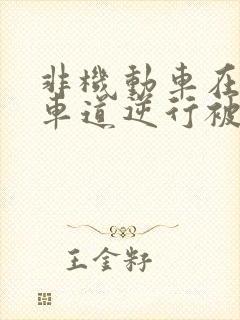 非機動車在
車道逆行被
王金籽